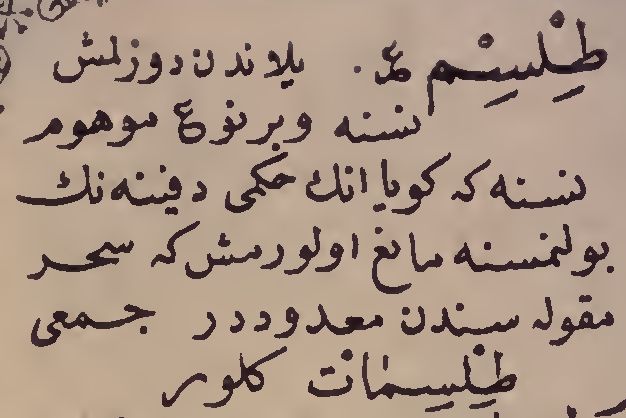 طِلْسِمْ ع. يلاندن دوزلمش
نسنه وبر نوع موهوم
نسنه كه كويا انك حكمى دفينه نك
بولنمسنه مانع اولورمش كه سحر
مقوله سندن معدوددر جمعى
طِلْسِمَاتْ كلور